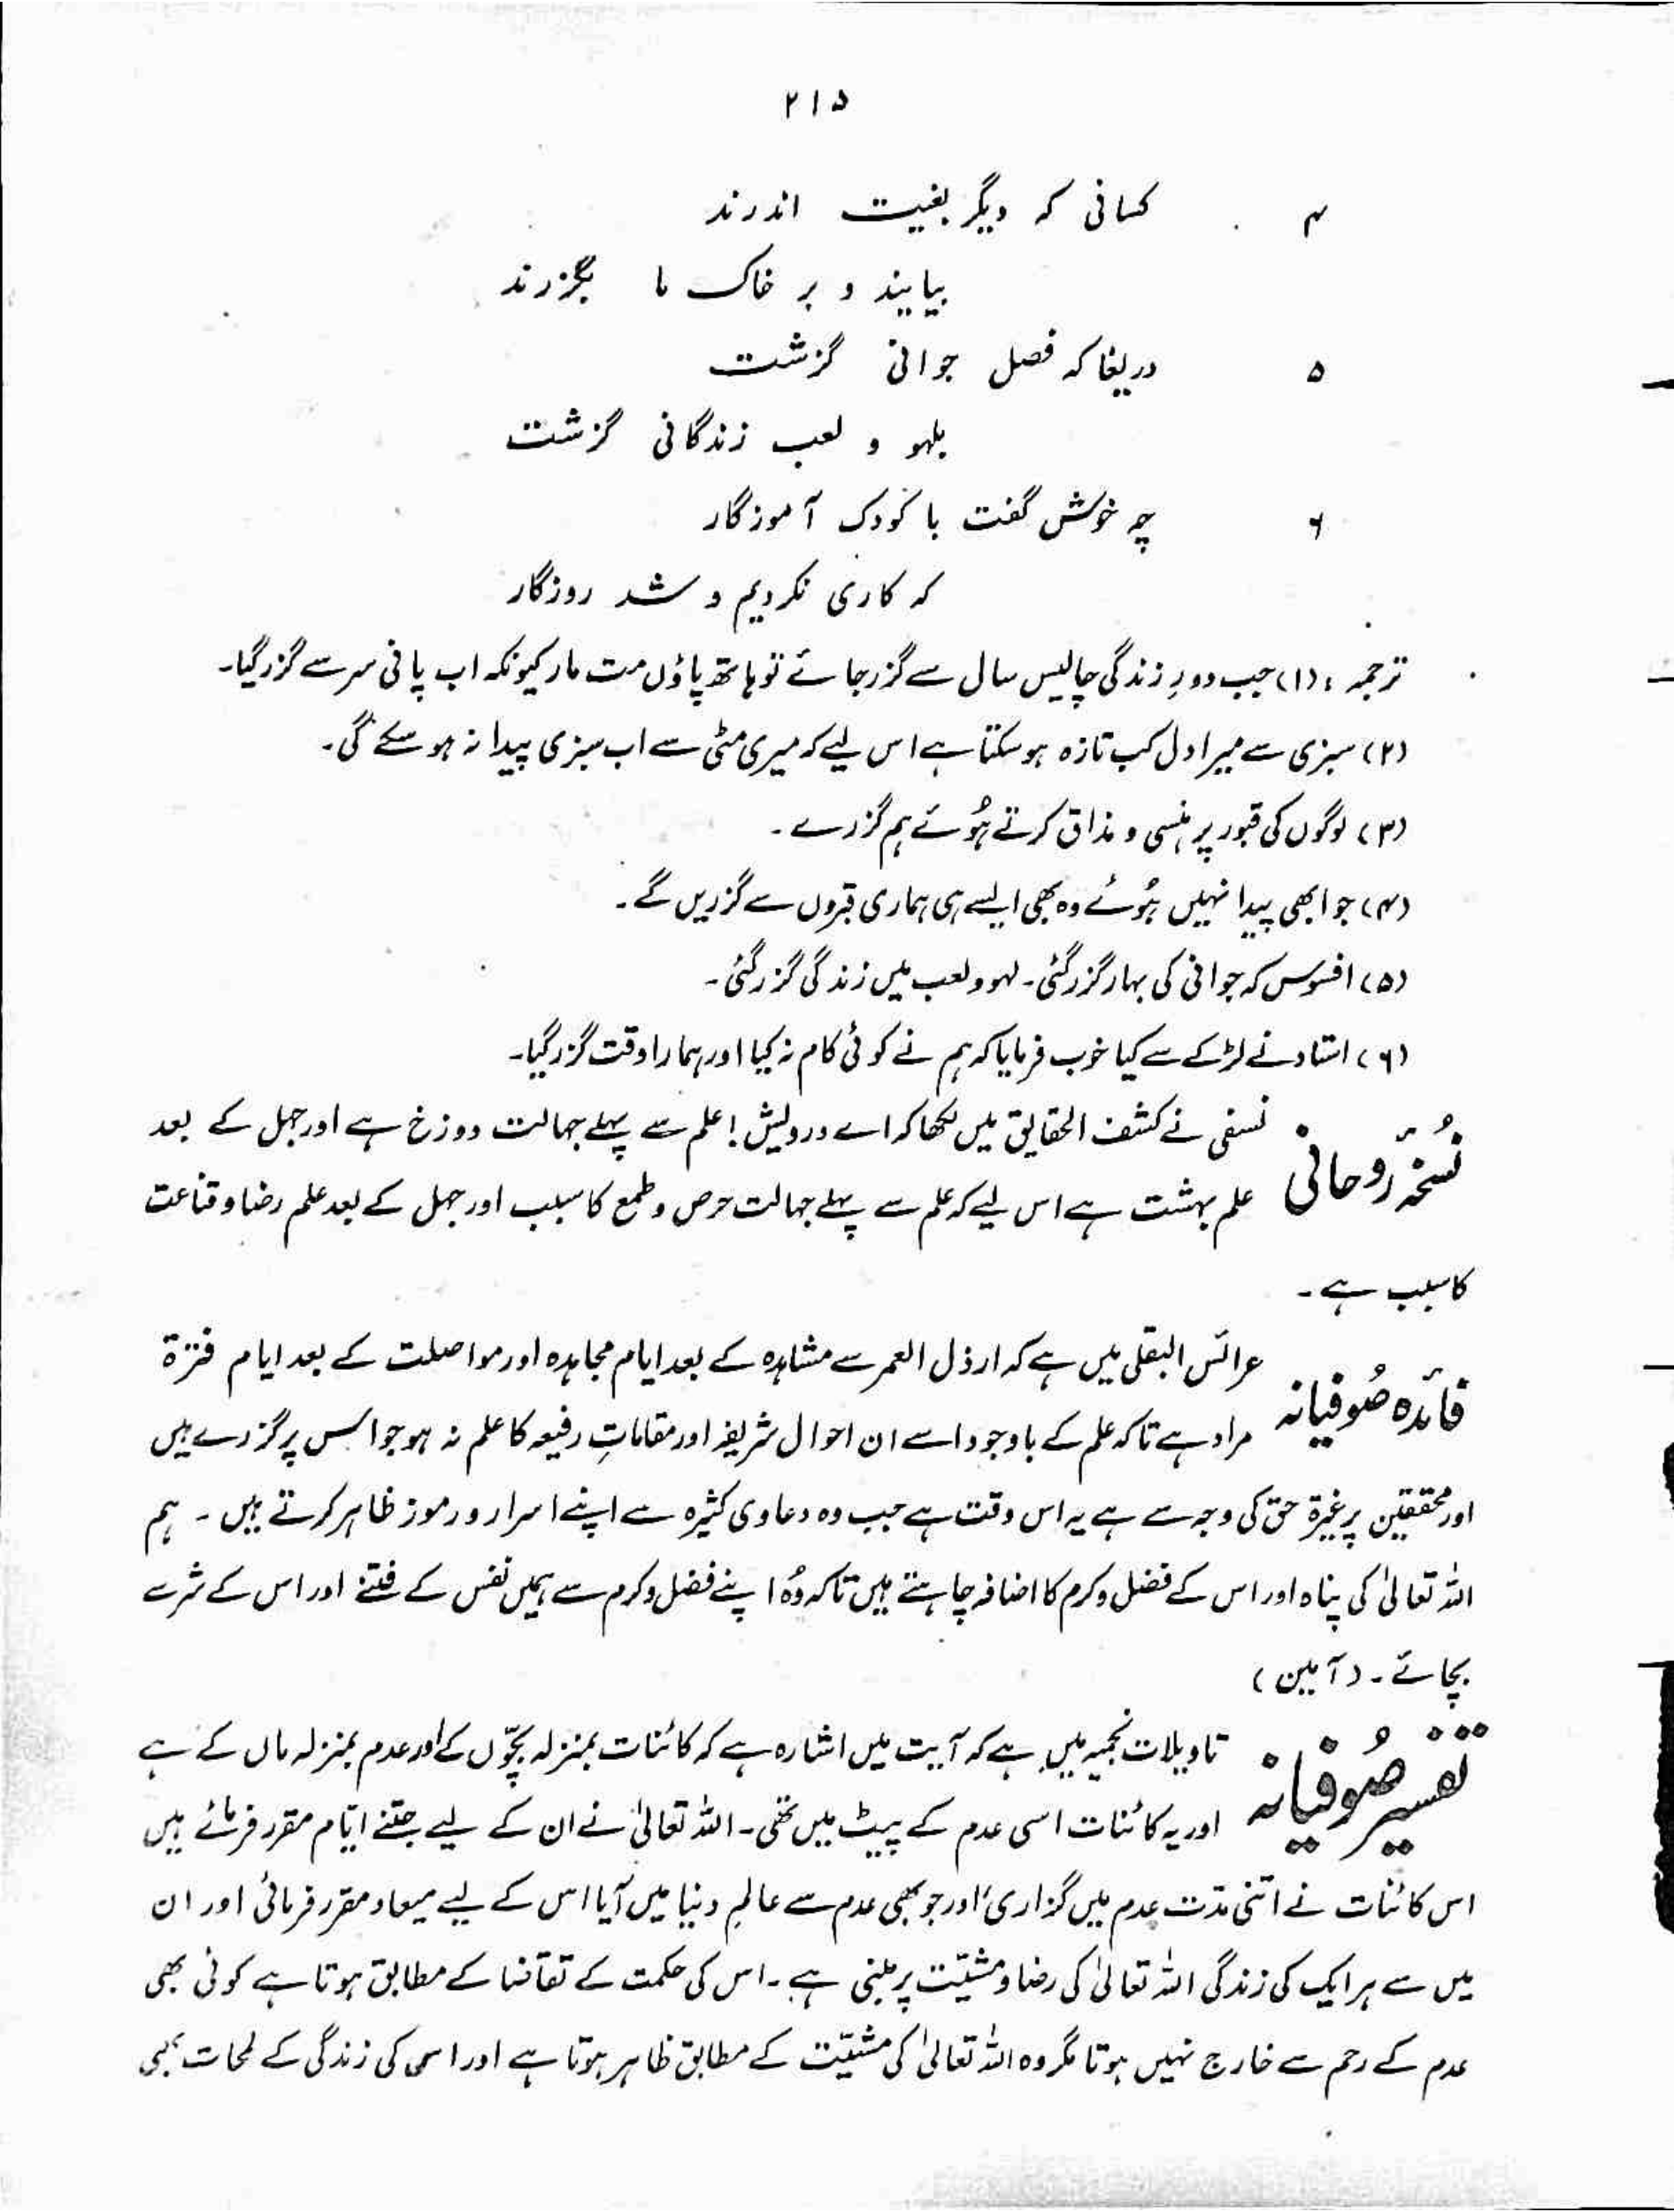 ۲۱۵
۴ کسانی کہ دیگر بغیبت اندرند
بیایند و بر خاک ما بگزرند
۵ دریغا کہ فصل جوانی گزشت
بلہو و لعب زندگانی گزشت
۶ چہ خوش گفت با کودک آموزگار
کہ کاری نکردیم و شد روزگار
ترجمہ : (۱) جب دورِ زندگی چالیس سال سے گزر جائے تو ہاتھ پاؤں مت مار کیونکہ اب پانی سر سے گزر گیا۔
(۲) سبزی سے میرا دل کب تازہ ہوسکتا ہے اس لیے کہ میری مٹی سے اب سبزی پیدا نہ ہو سکے گی۔
(۳) لوگوں کی قبور پر ہنسی و مذاق کرتے ہُوئے ہم گزرے۔
(۴) جو ابھی پیدا نہیں ہُوئے وہ بھی ایسے ہی ہماری قبروں سے گزریں گے۔
(۵) افسوس کہ جوانی کی بہار گزر گئی۔ لہو و لعب میں زندگی گزر گئی۔
(۶) استاد نے لڑکے سے کیا خوب فرمایا کہ ہم نے کوئی کام نہ کیا اور ہمارا وقت گزر گیا۔
نُسخہ رُوحانی نسفی نے کشف الحقایق میں لکھا کہ اے درویش! علم سے پہلے جہالت دوزخ ہے اور جہل کے بعد
علم بہشت ہے اس لیے کہ علم سے پہلے جہالت حرص و طمع کا سبب اور جہل کے بعد علم رضا و قناعت
کا سبب ہے۔
فائدہ صُوفیانہ عرائس البقلی میں ہے کہ ارذل العمر سے مشاہدہ کے بعد ایام مجاہدہ اور مواصلت کے بعد ایام فترۃ
مراد ہے تاکہ علم کے باوجود اسے ان احوال شریفہ اور مقاماتِ رفیعہ کا علم نہ ہو جو اس پر گزرے ہیں
اور محققین پر غیرۃ حق کی وجہ سے ہے یہ اس وقت ہے جب وہ دعاوی کثیرہ سے اپنے اسرار و رموز ظاہر کرتے ہیں۔ ہم
اللہ تعالیٰ کی پناہ اور اس کے فضل و کرم کا اضافہ چاہتے ہیں تاکہ وُہ اپنے فضل و کرم سے ہمیں نفس کے فتنے اور اس کے شر سے
بچائے۔ (آمین)
تفسیر صُوفیانہ تاویلات نجمیہ میں ہے کہ آیت میں اشارہ ہے کہ کائنات بمنزلہ بچّوں کے اور عدم بمنزلہ ماں کے ہے
اور یہ کائنات اسی عدم کے پیٹ میں تھی۔ اللہ تعالیٰ نے ان کے لیے جتنے ایّام مقرر فرمائے ہیں
اس کائنات نے اتنی مدّت عدم میں گزاری، اور جو بھی عدم سے عالمِ دنیا میں آیا اس کے لیے میعاد مقرر فرمائی اور ان
میں سے ہر ایک کی زندگی اللہ تعالیٰ کی رضا و مشیّت پر مبنی ہے۔ اس کی حکمت کے تقاضا کے مطابق ہوتا ہے کوئی بھی
عدم کے رحم سے خارج نہیں ہوتا مگر وہ اللہ تعالیٰ کی مشیّت کے مطابق ظاہر ہوتا ہے اور اس کی زندگی کے لمحات بھی